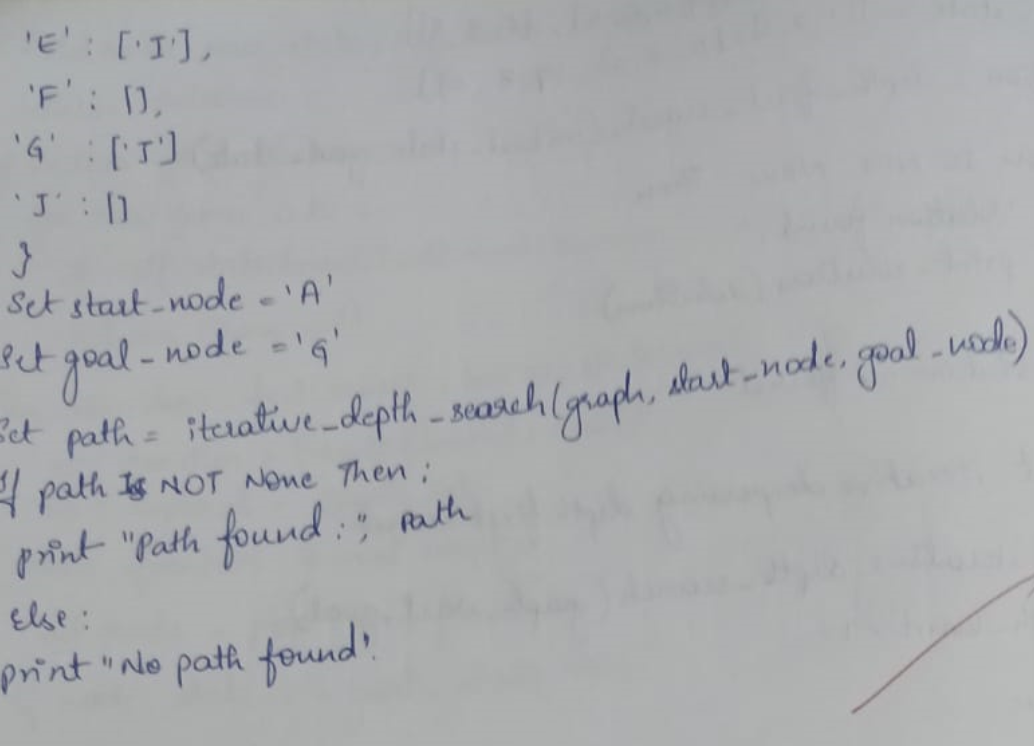 'E' : ['I'],
'F' : [],
'G' : ['J']
'J' : []
}
Set start_node = 'A'
Set goal_node = 'G'
Set path = iterative_depth_search(graph, start_node, goal_node)
If path Is NOT None Then :
print "Path found :", Path
Else :
print "No path found".